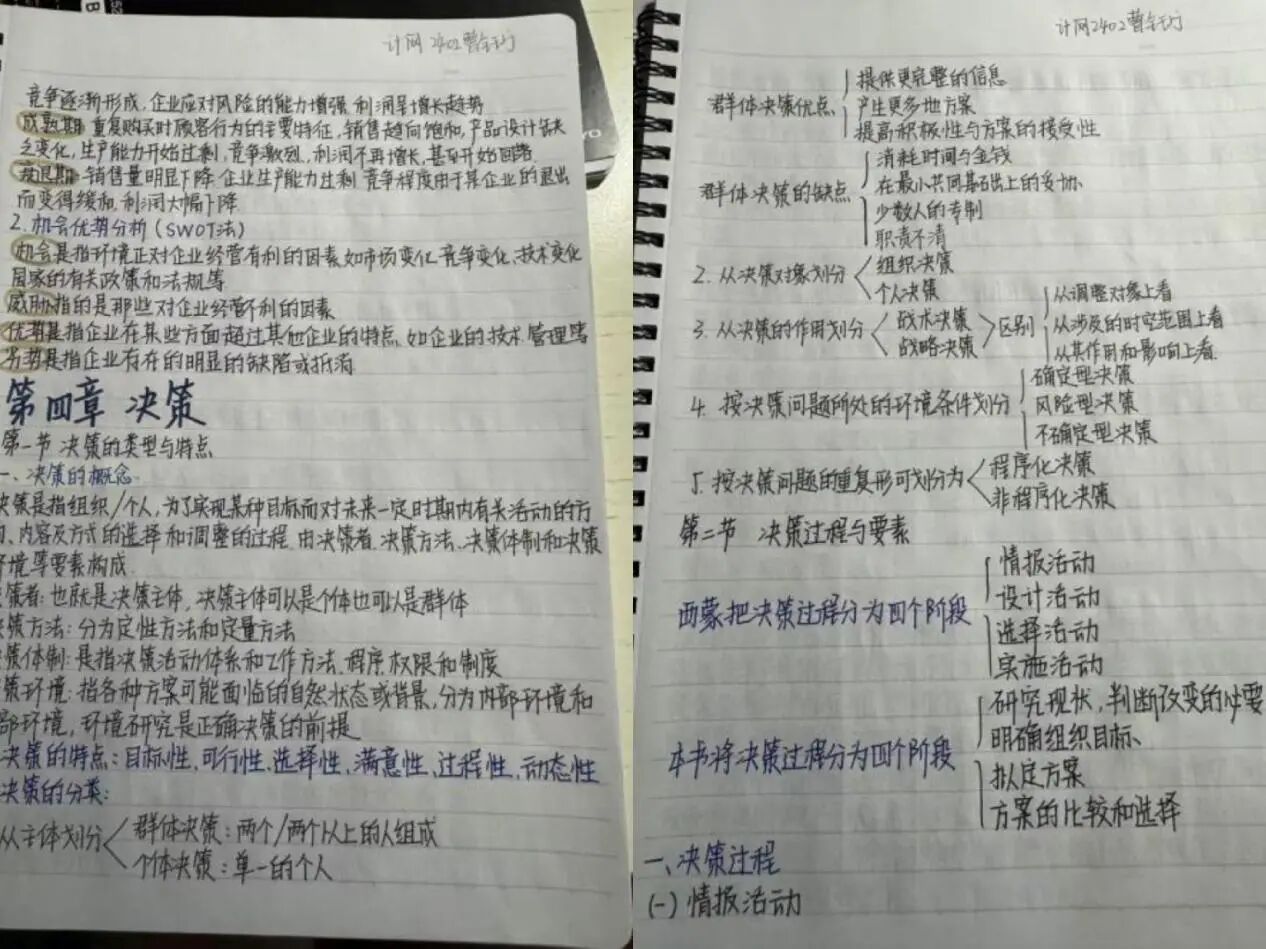 计网2402曹
竞争逐渐形成,企业应对风险的能力增强,利润呈增长趋势
成熟期:重复购买时顾客行为的主要特征,销售趋向饱和,产品设计缺
乏变化,生产能力开始过剩,竞争激烈,利润不再增长,甚至开始回落.
衰退期:销售量明显下降,企业生产能力过剩,竞争程度由于某企业的退出
而变得缓和,利润大幅下降.
2.机会优势分析(SWOT法)
机会是指环境正对企业经营有利的因素,如市场变化、竞争变化、技术变化
国家的有关政策和法规等.
威胁指的是那些对企业经营不利的因素
优势是指企业在某些方面超过其他企业的特点,如企业的技术,管理等
劣势是指企业存在的明显的缺陷或抵消
第四章 决策
第一节 决策的类型与特点
一、决策的概念
决策是指组织/个人,为了实现某种目标而对未来一定时期内有关活动的方
、内容及方式的选择和调整的过程.由决策者、决策方法、决策体制和决策
环境等要素构成.
策者:也就是决策主体,决策主体可以是个体也可以是群体
决策方法:分为定性方法和定量方法
策体制:是指决策活动体系和工作方法、程序、权限和制度
策环境:指各种方案可能面临的自然状态或背景,分为内部环境和
部环境,环境研究是正确决策的前提
决策的特点:目标性、可行性、选择性、满意性、过程性、动态性
决策的分类:
从主体划分
群体决策:两个/两个以上的人组成
个体决策:单一的个人
计网2402曹
群体决策优点
提供更完整的信息
产生更多地方案
提高积极性与方案的接受性
群体决策的缺点
消耗时间与金钱
在最小共同基础上的妥协
少数人的专制
职责不清
2.从决策对象划分
组织决策
个人决策
3.从决策的作用划分
战术决策
战略决策
区别
从调整对象上看
从涉及的时空范围上看
从其作用和影响上看.
4.按决策问题所处的环境条件划分
确定型决策
风险型决策
不确定型决策
5.按决策问题的重复形可划分为
程序化决策
非程序化决策
第二节 决策过程与要素
西蒙把决策过程分为四个阶段
情报活动
设计活动
选择活动
实施活动
本书将决策过程分为四个阶段
研究现状,判断改变的必要
明确组织目标、
拟定方案
方案的比较和选择
一、决策过程
(一)情报活动